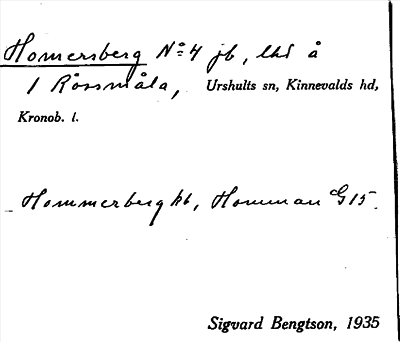 Homersberg No 4 jb, lht å
1 Rössmåla, Urshults sn, Kinnevalds hd,
Kronob. l.
Hommerberg kb, Homman G 15.
Sigvard Bengtson, 1935